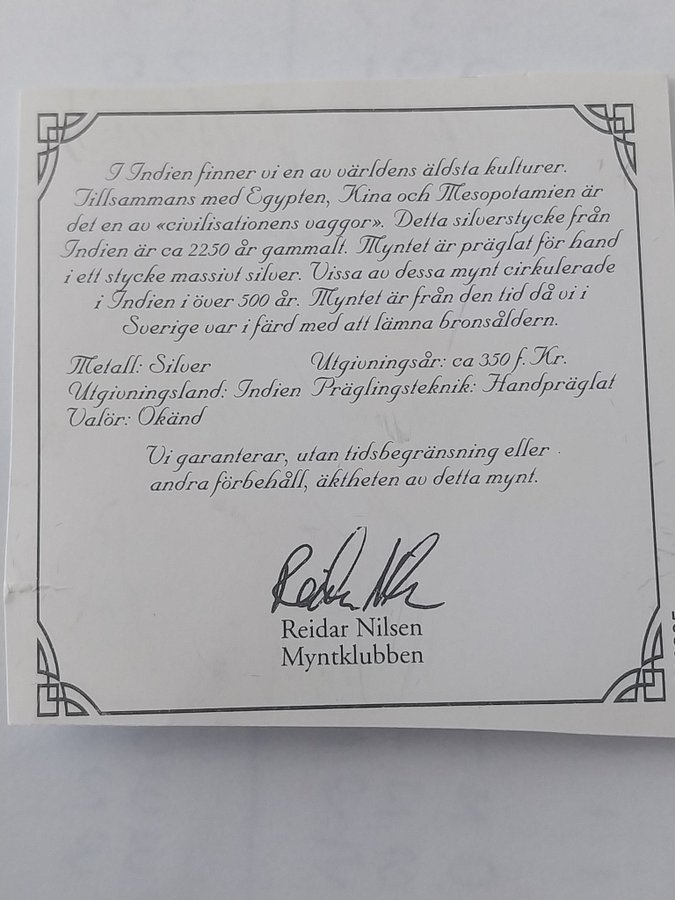 I Indien finner vi en av världens äldsta kulturer.
Tillsammans med Egypten, Kina och Mesopotamien är
det en av «civilisationens vaggor». Detta silverstycke från
Indien är ca 2250 år gammalt. Myntet är präglat för hand
i ett stycke massivt silver. Vissa av dessa mynt cirkulerade
i Indien i över 500 år. Myntet är från den tid då vi i
Sverige var i färd med att lämna bronsåldern.
Metall: Silver Utgivningsår: ca 350 f. Kr.
Utgivningsland: Indien Präglingsteknik: Handpräglat
Valör: Okänd
Vi garanterar, utan tidsbegränsning eller
andra förbehåll, äktheten av detta mynt.
Reidar Nilsen
Reidar Nilsen
Myntklubben